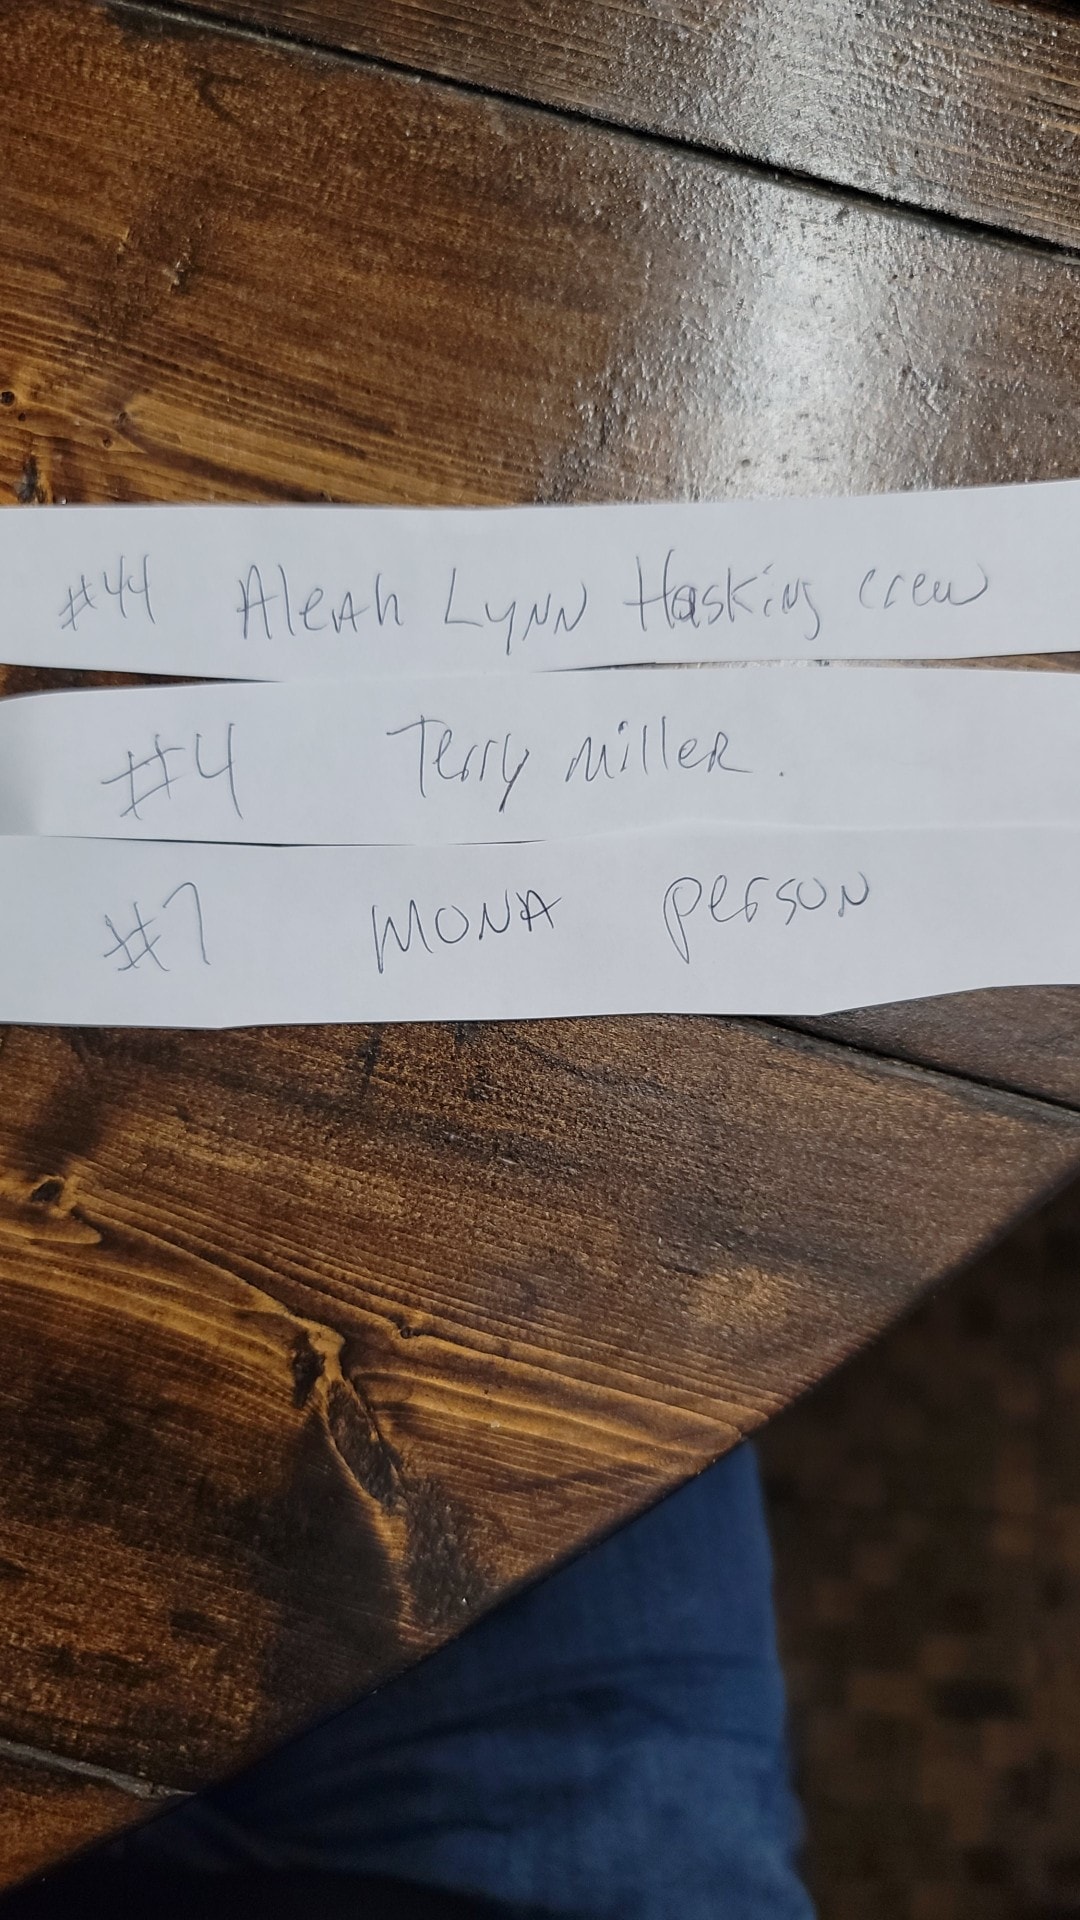 #44 Aleah Lynn Hasking crew
#4 Terry Miller.
#7 MONA person